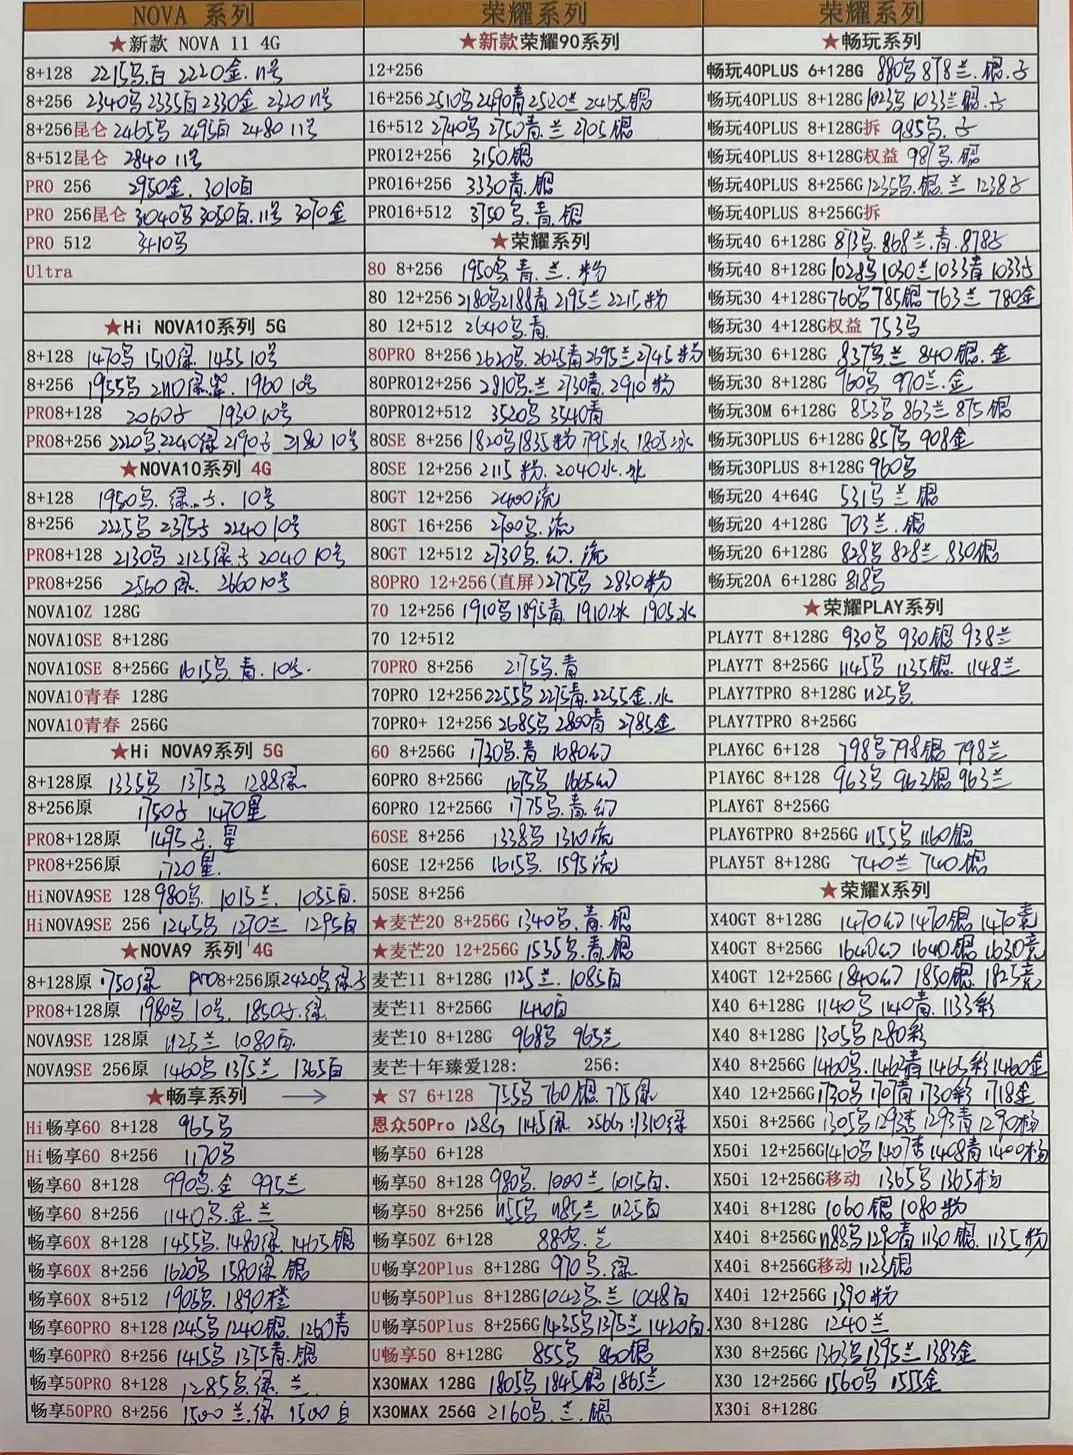 NOVA 系列
★新款 NOVA 11 4G
8+128 2215乌.白 2220金.11号
8+256 2340乌 2335白 2330金 2320 11号
8+256昆仑 2465乌 2495白 2480 11号
8+512昆仑 2840 11号
PRO 256 2950金. 3010白
PRO 256昆仑 3040乌 3050白.11号 3070金
PRO 512 3410乌
Ultra
★Hi NOVA10系列 5G
8+128 1470乌 1510绿 1455 10号
8+256 1955乌 2110绿.紫. 1960 10号
PRO8+128 2060子 1930 10号
PRO8+256 2220乌.2240绿 2190子 2180 10号
★NOVA10系列 4G
8+128 1950乌. 绿.子. 10号
8+256 2225乌 2375子 2240 10号
PRO8+128 2130乌 2125绿.子 2040 10号
PRO8+256 2560绿. 2660 10号
NOVA10Z 128G
NOVA10SE 8+128G
NOVA10SE 8+256G 1615乌.青.10号.
NOVA10青春 128G
NOVA10青春 256G
★Hi NOVA9系列 5G
8+128原 1335乌 1375子 1288绿
8+256原 1750子 1470星
PRO8+128原 1495子.星
PRO8+256原 1720星.
HiNOVA9SE 128 980乌. 1015兰. 1035白.
HiNOVA9SE 256 1245乌 1270兰 1295白
★NOVA9 系列 4G
8+128原 1750绿 pro8+256原2420乌.绿.子
PRO8+128原 1980乌.10号. 1850子.绿.
NOVA9SE 128原 1125兰 1080白.
NOVA9SE 256原 1460乌 1375兰 1365白
★畅享系列 →
Hi畅享60 8+128 965乌
Hi畅享60 8+256 1170乌
畅享60 8+128 990乌.金 995兰
畅享60 8+256 1140乌.金兰
畅享60X 8+128 1455乌.1480绿.1465银
畅享60X 8+256 1620乌 1580绿 银
畅享60X 8+512 1905乌. 1890橙
畅享60PRO 8+128 1245乌 1240银. 1260青
畅享60PRO 8+256 1415乌 1375青.银
畅享50PRO 8+128 1285乌.绿.兰.
畅享50PRO 8+256 1500兰.绿 1500白
荣耀系列
★新款荣耀90系列
12+256
16+256 2510乌 2490青 2520兰 2465银
16+512 2740乌 2750青.兰 2705银
PRO12+256 3150银
PRO16+256 3330青.银
PRO16+512 3750乌.青.银
★荣耀系列
80 8+256 1950乌.青.兰.粉
80 12+256 2180乌 2188青 2195兰 2215粉
80 12+512 2640乌.青
80PRO 8+256 2620乌.2625青 2695兰 2745粉
80PRO12+256 2810乌.兰 2730青.2910粉
80PRO12+512 3520乌 3540青
80SE 8+256 1820乌 1835粉 795水 1805冰
80SE 12+256 2115粉. 2040水.冰
80GT 12+256 2400流
80GT 16+256 2700乌.流
80GT 12+512 2730乌.幻.流
80PRO 12+256(直屏) 2775乌 2830粉
70 12+256 1910乌 1895青 1910冰 1905水
70 12+512
70PRO 8+256 2175乌.青
70PRO 12+256 2255乌 2275青.2255金.水
70PRO+ 12+256 2685乌 2800青 2785金
60 8+256G 1730乌.青 1680幻
60PRO 8+256G 1675乌 1665幻
60PRO 12+256G 1775乌.青.幻
60SE 8+256 1338乌 1310流
60SE 12+256 1615乌. 1595流
50SE 8+256
★麦芒20 8+256G 1340乌.青.银
★麦芒20 12+256G 1535乌.青.银
麦芒11 8+128G 1125兰. 1085白
麦芒11 8+256G 1410白
麦芒10 8+128G 968乌 965兰
麦芒十年臻爱128: 256:
★ S7 6+128 755乌 760银 775绿
恩众50Pro 128G 1145绿 256G:1310绿
畅享50 6+128
畅享50 8+128 980乌. 1000兰 1015白.
畅享50 8+256 1155乌 1185兰 1125白
畅享50Z 6+128 880乌.兰
U畅享20Plus 8+128G 970乌.绿
U畅享50Plus 8+128G 1042乌.兰 1048白
U畅享50Plus 8+256G 1435乌 1375兰 1420白.
U畅享50 8+128G 855乌 860银
X30MAX 128G 1805乌 1845银 1865兰
X30MAX 256G 2160乌.兰.银
荣耀系列
★畅玩系列
畅玩40PLUS 6+128G 880乌 878兰.银.子
畅玩40PLUS 8+128G 1023乌 1033兰银.子
畅玩40PLUS 8+128G拆 985乌.子
畅玩40PLUS 8+128G权益 987乌.银
畅玩40PLUS 8+256G 1235乌.银.兰 1238子
畅玩40PLUS 8+256G拆
畅玩40 6+128G 873乌.868兰.青.878子
畅玩40 8+128G 1028乌 1030兰 1033青 1033子
畅玩30 4+128G 760乌 785银 763兰 780金
畅玩30 4+128G权益 753乌
畅玩30 6+128G 837乌.兰 840银.金
畅玩30 8+128G 960乌 970兰.金
畅玩30M 6+128G 853乌 863兰 875银
畅玩30PLUS 6+128G 857乌 908金
畅玩30PLUS 8+128G 960乌
畅玩20 4+64G 531乌兰 银
畅玩20 4+128G 703兰.银
畅玩20 6+128G 828乌 828兰 830银
畅玩20A 6+128G 818乌
★荣耀PLAY系列
PLAY7T 8+128G 930乌 930银 938兰
PLAY7T 8+256G 1145乌 1135银. 1148兰
PLAY7TPRO 8+128G 1125乌.
PLAY7TPRO 8+256G
PLAY6C 6+128 798乌 798银 798兰
PlAY6C 8+128 963乌 963银 963兰
PLAY6T 8+256G
PLAY6TPRO 8+256G 1155乌 1160银
PLAY5T 8+128G 740兰 740银
★荣耀X系列
X40GT 8+128G 1470幻 1470银 1470竞
X40GT 8+256G 1640幻 1640银 1630竞
X40GT 12+256G 1840幻 1850银 1825竞
X40 6+128G 1140乌 1140青.1133彩
X40 8+128G 1305乌 1280彩
X40 8+256G 1460乌.1462青 1465彩 1460金
X40 12+256G 1730乌 1707青 1730彩 1718金
X50i 8+256G 1305乌 1293杏 1293青 1290杨
X50i 12+256G 1410乌 1407杏 1408青 1400杨
X50i 12+256G移动 1365乌 1365杨
X40i 8+128G 1060银 1080粉
X40i 8+256G 1188乌 1290青 1130银.1135粉
X40i 8+256G移动 1123银
X40i 12+256G 1390粉
X30 8+128G 1240兰
X30 8+256G 1363乌 1395兰 1383金
X30 12+256G 1560乌 1555金
X30i 8+128G